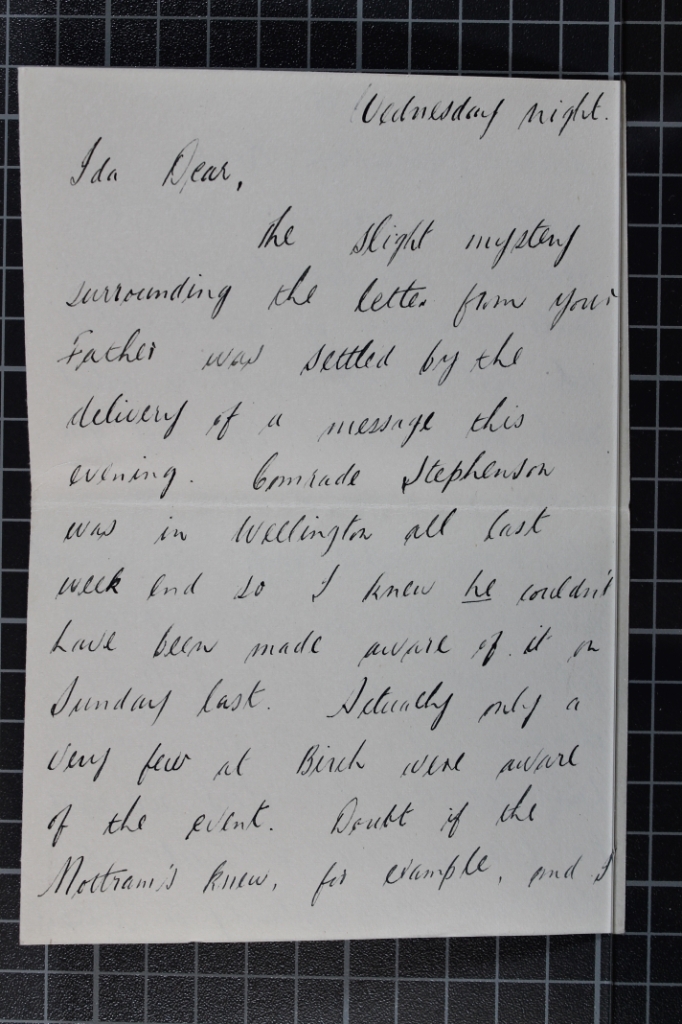 Wednesday night.
Ida Dear,
The slight mystery
surrounding the letter from your
Father was settled by the
delivery of a message this
evening. Comrade Stephenson
was in Wellington all last
week end so I knew he couldn't
have been made aware of it on
Sunday last. Actually only a
very few at Birch were aware
of the event. Doubt if the
Mottram's knew, for example, and I